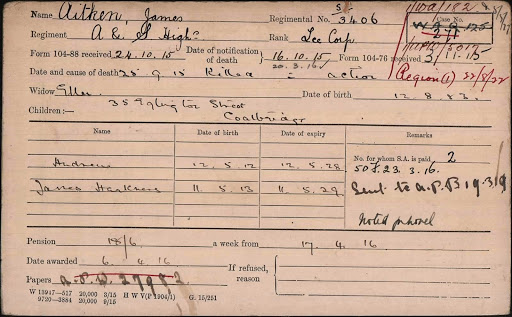 Name Aitken, James
Regimental No. S/3406
1/WA/182
Case No.
Regiment A & S Highrs
Rank Lce Corp
Form 104-88 received 24.10.15
Date of notification of death 16.10.15
20.3.16
Form 104-76 received 3/11.15
Date and cause of death 25 9 15 Killed in action
Region(1) 22/8/22
Widow Ellen
Date of birth 12.8.83.
Children:— 35 Eglington Street
Coatbridge
Name
Date of birth
Date of expiry
Remarks
No. for whom S.A. is paid 2
Andrew 12.5.12 12.5.28
508.23.3.16.
James Harkness 11.5.13 11.5.29
Sent to A.P.B 19.3.19
Noted
Pension 18/6 a week from 17.4.16
Date awarded 6 4 16
If refused, reason
Papers A.P.W. 27982
W 15947—517 20,000 3/15 H W V(P 1904/1) G. 15/251
9720—3884 20,000 9/15